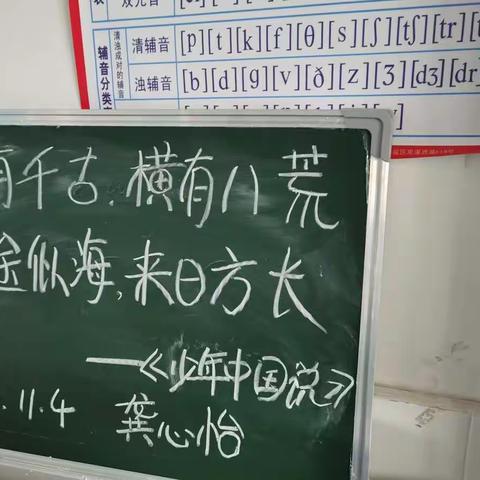 清浊成对的辅音
辅音分类
清辅音 [p] [t] [k] [f] [θ] [s] [ʃ] [tʃ] [tr]
浊辅音 [b] [d] [g] [v] [ð] [z] [ʒ] [dʒ] [dr]
有千古,横有八荒
途似海,来日方长
——《少年中国说》
.11.4 龚心怡